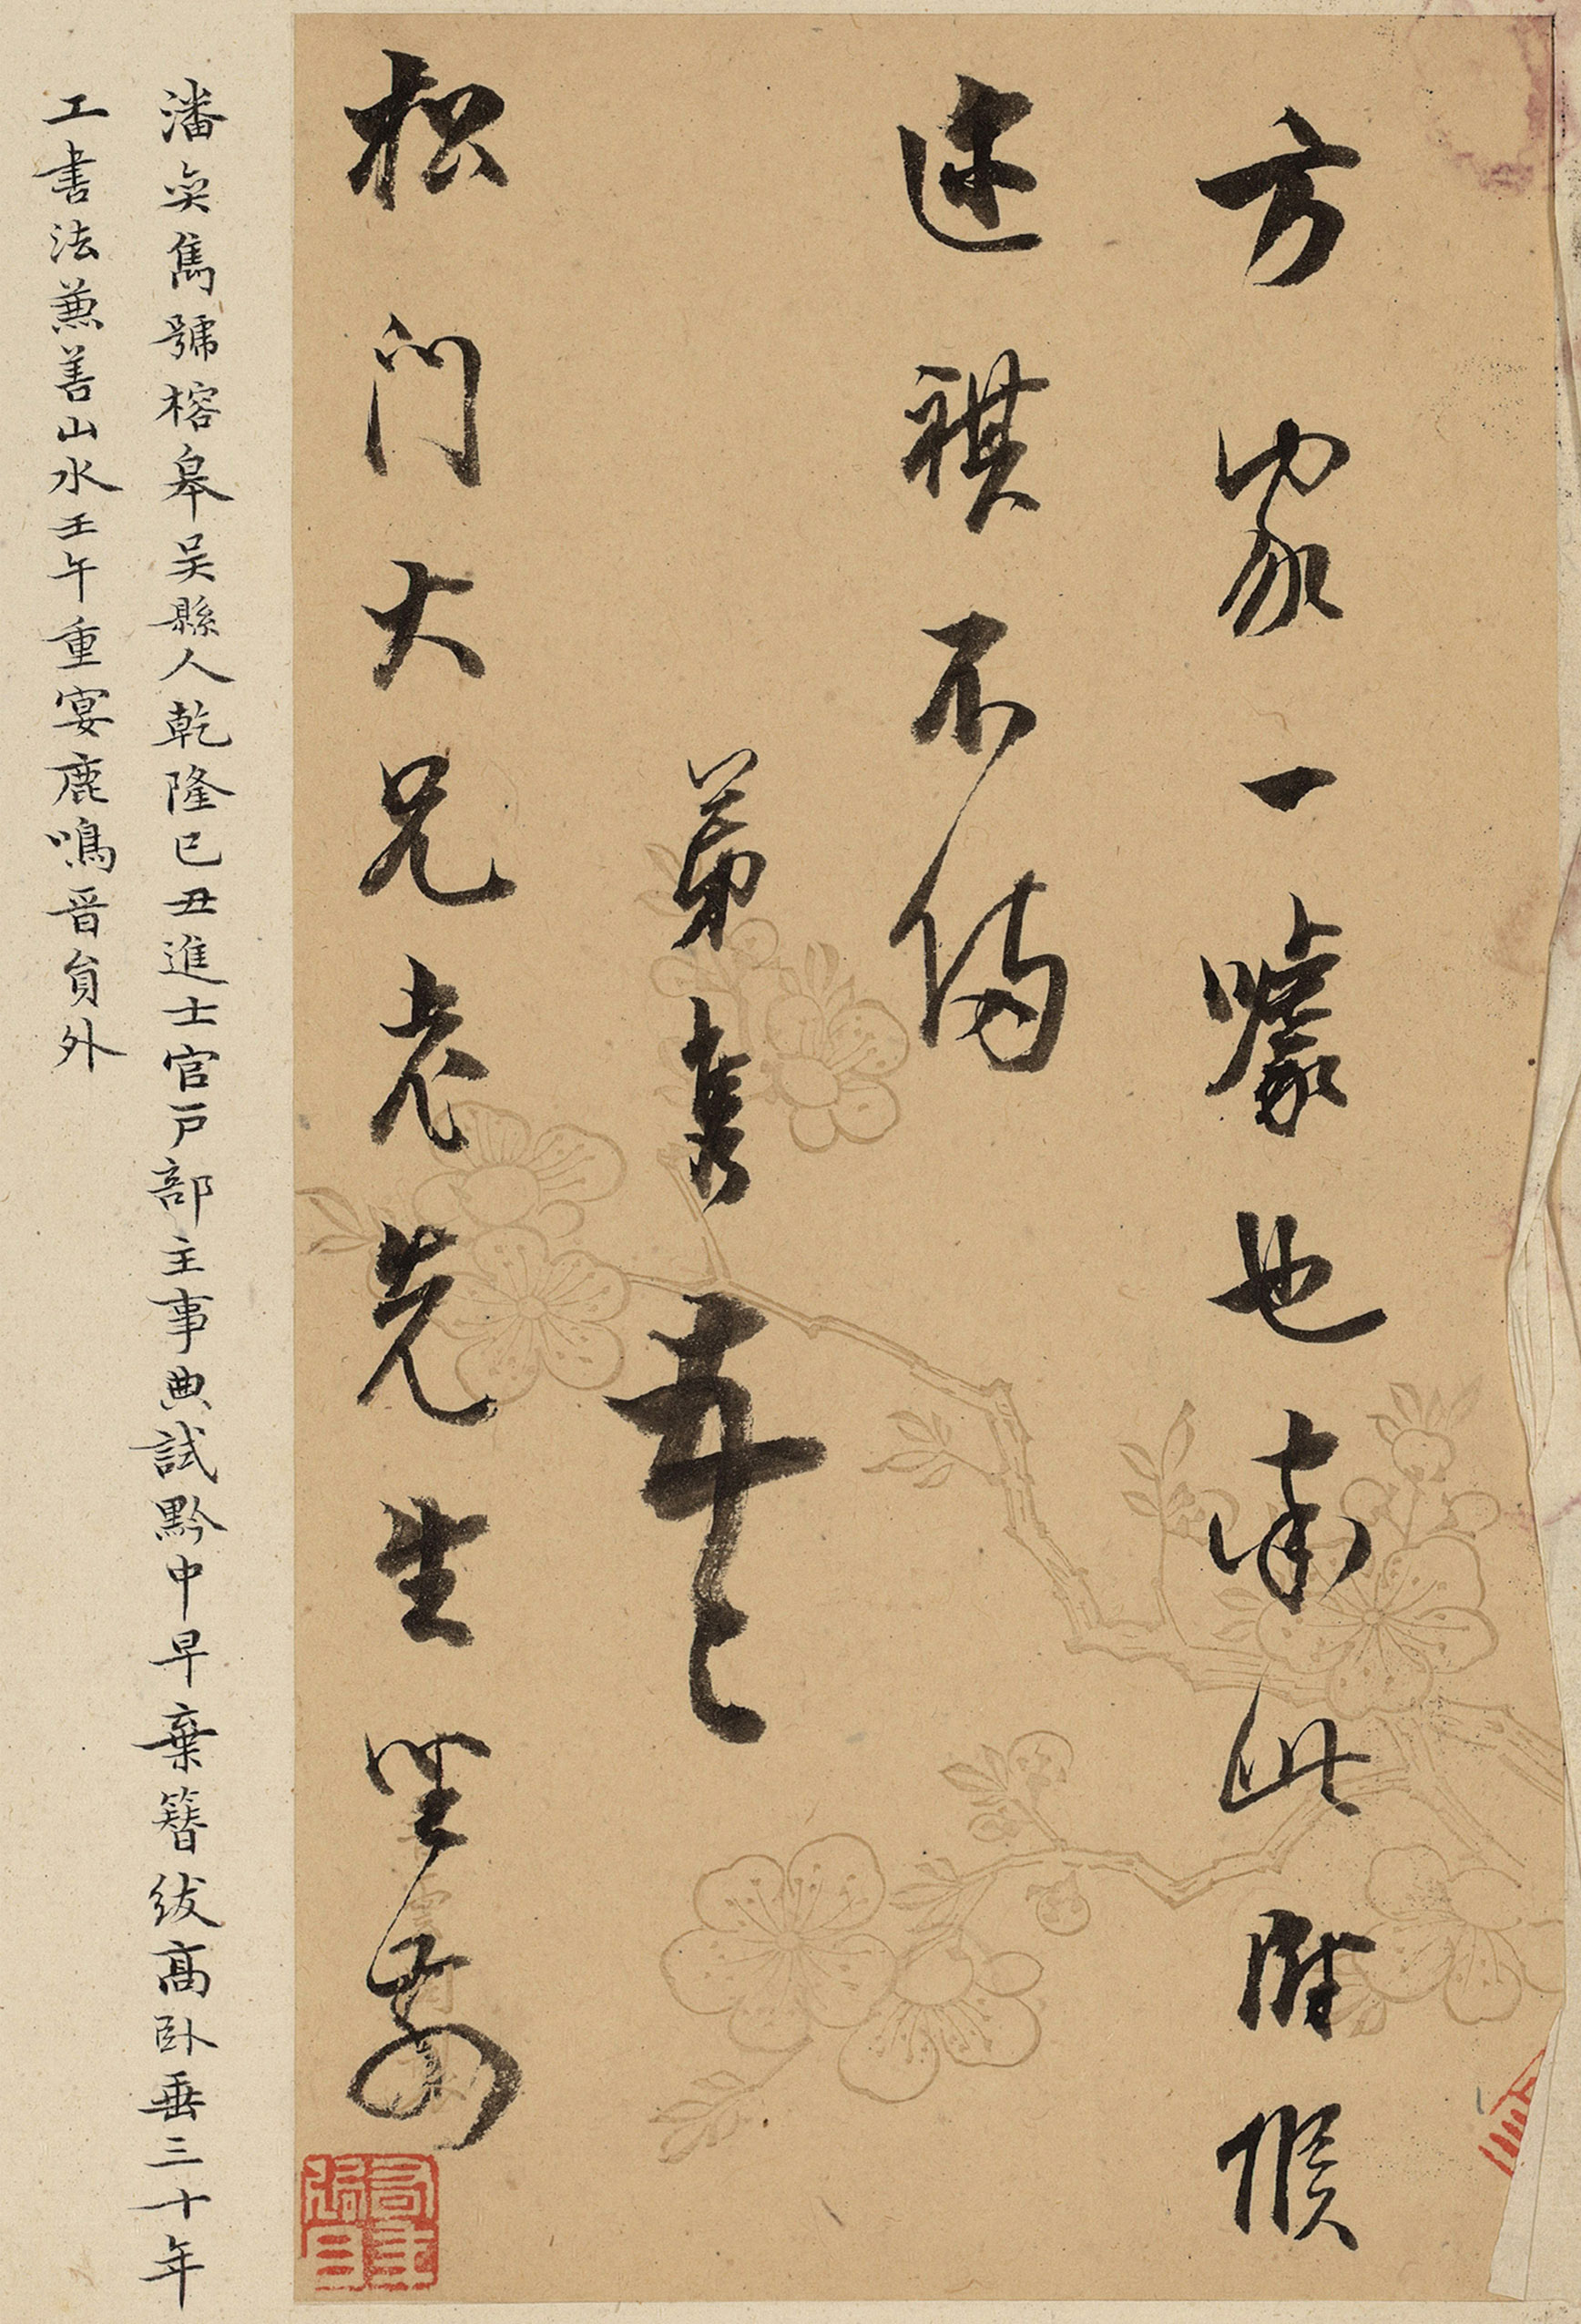 方家一噱也肅此附候
近祺不備
弟奕雋頓首
松門大兄老先生 坐前
潘奕雋號榕皋吴縣人乾隆巳丑進士官戶部主事典試黔中早棄簪紱高卧垂三十年
工書法蒹善山水壬午重宴鹿鳴晉貟外